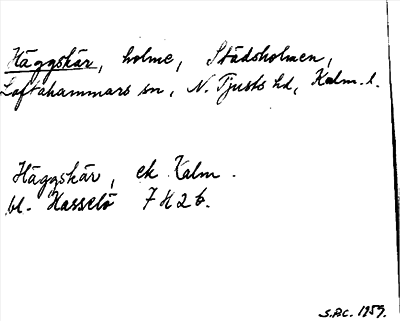 Häggskär, holme, Städsholmen,
Loftahammars sn, N. Tjusts hd, Kalm. l.
Häggskär, ek. Kalm.
bl. Hasselö 7H2b.
S.P.C. 1959.